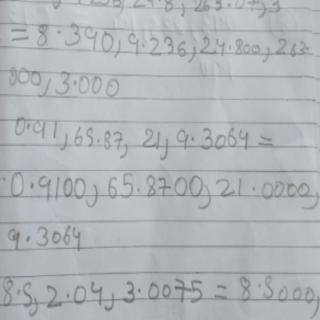 24.8, 263.07, 3
= 8.340, 9.236, 24.800, 263
000, 3.000
0.91, 65.87, 21, 9.3064 =
0.9100, 65.8700, 21.0000,
9.3064
8.5, 2.04, 3.0075 = 8.5000,